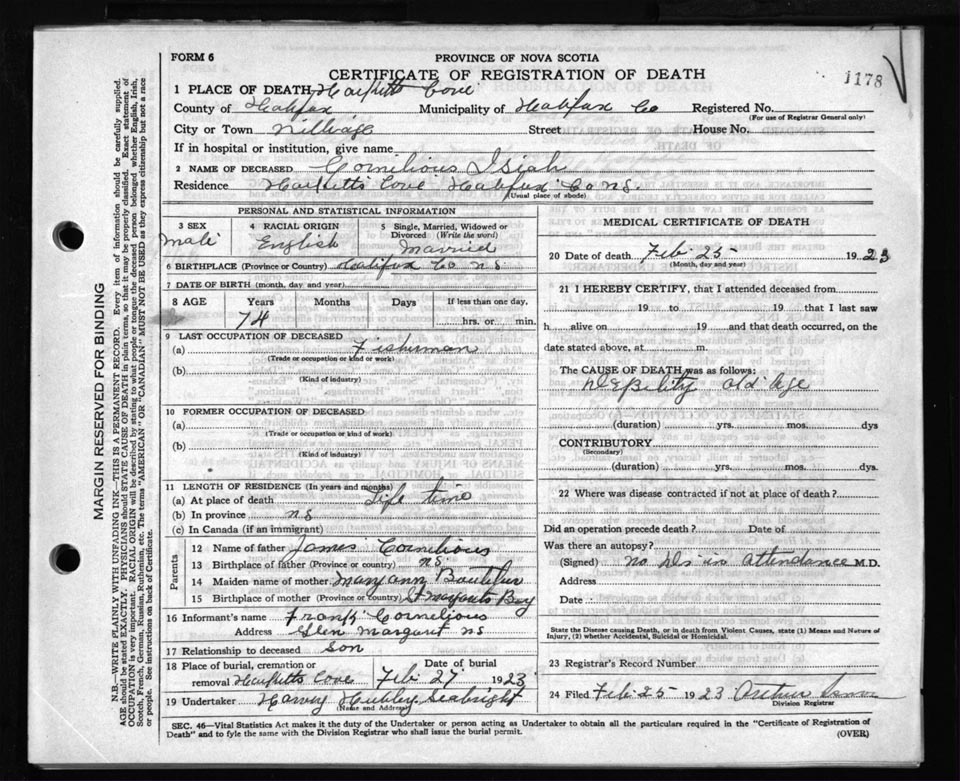 FORM 6
PROVINCE OF NOVA SCOTIA
CERTIFICATE OF REGISTRATION OF DEATH
1178
1 PLACE OF DEATH Cove
County of Halifax Municipality of Halifax Co Registered No.
(For use of Registrar General only)
City or Town Street House No.
If in hospital or institution, give name
2 NAME OF DECEASED Cornilious Isiah
Residence Cove Halifax Co N.S.
(Usual place of abode)
PERSONAL AND STATISTICAL INFORMATION
3 SEX Male
4 RACIAL ORIGIN English
5 Single, Married, Widowed or Divorced (Write the word) Married
6 BIRTHPLACE (Province or Country) Halifax Co N S
7 DATE OF BIRTH (month, day, and year)
8 AGE Years Months Days If less than one day,
74 hrs. or min.
9 LAST OCCUPATION OF DECEASED
(a) Fisherman
(Trade or occupation or kind or work)
(b)
(Kind of industry)
10 FORMER OCCUPATION OF DECEASED
(a)
(Trade or occupation or kind of work)
(b)
(Kind of industry)
11 LENGTH OF RESIDENCE (In years and months)
(a) At place of death Life time
(b) In province N S
(c) In Canada (if an immigrant)
Parents
12 Name of father James Cornilious
13 Birthplace of father (Province or country) N S
14 Maiden name of mother Mary Ann
15 Birthplace of mother (Province or country) St Margarets Bay
16 Informant's name Frank Cornelious
Address Glen Margaret N S
17 Relationship to deceased Son
18 Place of burial, cremation or removal Cove Date of burial Feb 27 1923
19 Undertaker Harvey Hubley Seabright
(Name and Address)
MEDICAL CERTIFICATE OF DEATH
20 Date of death Feb 25 1923
(Month, day and year)
21 I HEREBY CERTIFY, that I attended deceased from
19 to 19 that I last saw
h alive on 19 and that death occurred, on the
date stated above, at m.
The CAUSE OF DEATH was as follows:
Debility old age
(duration) yrs. mos. dys
CONTRIBUTORY
(Secondary)
(duration) yrs. mos. dys.
22 Where was disease contracted if not at place of death?
Did an operation precede death? Date of
Was there an autopsy?
(Signed) No Drs in attendance M.D.
Address
Date
State the Disease causing Death, or in death from Violent Causes, state (1) Means and Nature of
Injury, (2) whether Accidental, Suicidal or Homicidal.
23 Registrar's Record Number
24 Filed Feb 25 1923
Division Registrar
SEC. 46—Vital Statistics Act makes it the duty of the Undertaker or person acting as Undertaker to obtain all the particulars required in the "Certificate of Registration of
Death" and to fyle the same with the Division Registrar who shall issue the burial permit.
(OVER)
MARGIN RESERVED FOR BINDING
N.B.—WRITE PLAINLY WITH UNFADING INK—THIS IS A PERMANENT RECORD. Every item of information should be carefully supplied.
AGE should be stated EXACTLY. PHYSICIANS should STATE CAUSE OF DEATH in plain terms, so that it may be properly classified. Exact statement of
OCCUPATION is very important. RACIAL ORIGIN will be described by stating to what people or tongue the deceased person belonged whether English, Irish,
Scotch, French, German, Russian, Ruthenian, etc. The terms "AMERICAN" OR "CANADIAN" MUST NOT BE USED as they express citizenship but not a race
or people. See instructions on back of Certificate.